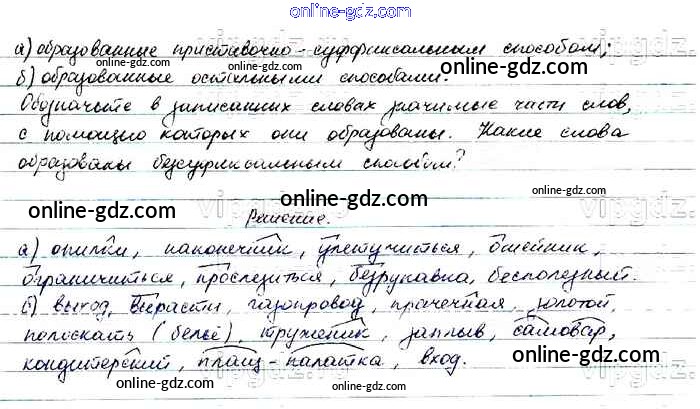 online-gdz.com
а) образованные приставочно-суффиксальным способом;
online-gdz.com
б) образованные остальными способами.
Обозначьте в записанных словах значимые части слов,
с помощью которых они образованы. Какие слова
образованы безсуффиксальным способом?
online-gdz.com online-gdz.com online-gdz.com
Решение.
а) опилки, наконечник, улетучиться, ошейник,
ограничиться, прослезиться, безрукавка, бесполезный.
online-gdz.com
б) выход, вырасти, газопровод, прачечная, золотой,
полоскать (бельё), труженик, заплыв, самовар,
online-gdz.com
кондитерский, плащ-палатка, вход.
online-gdz.com
online-gdz.com online-gdz.com